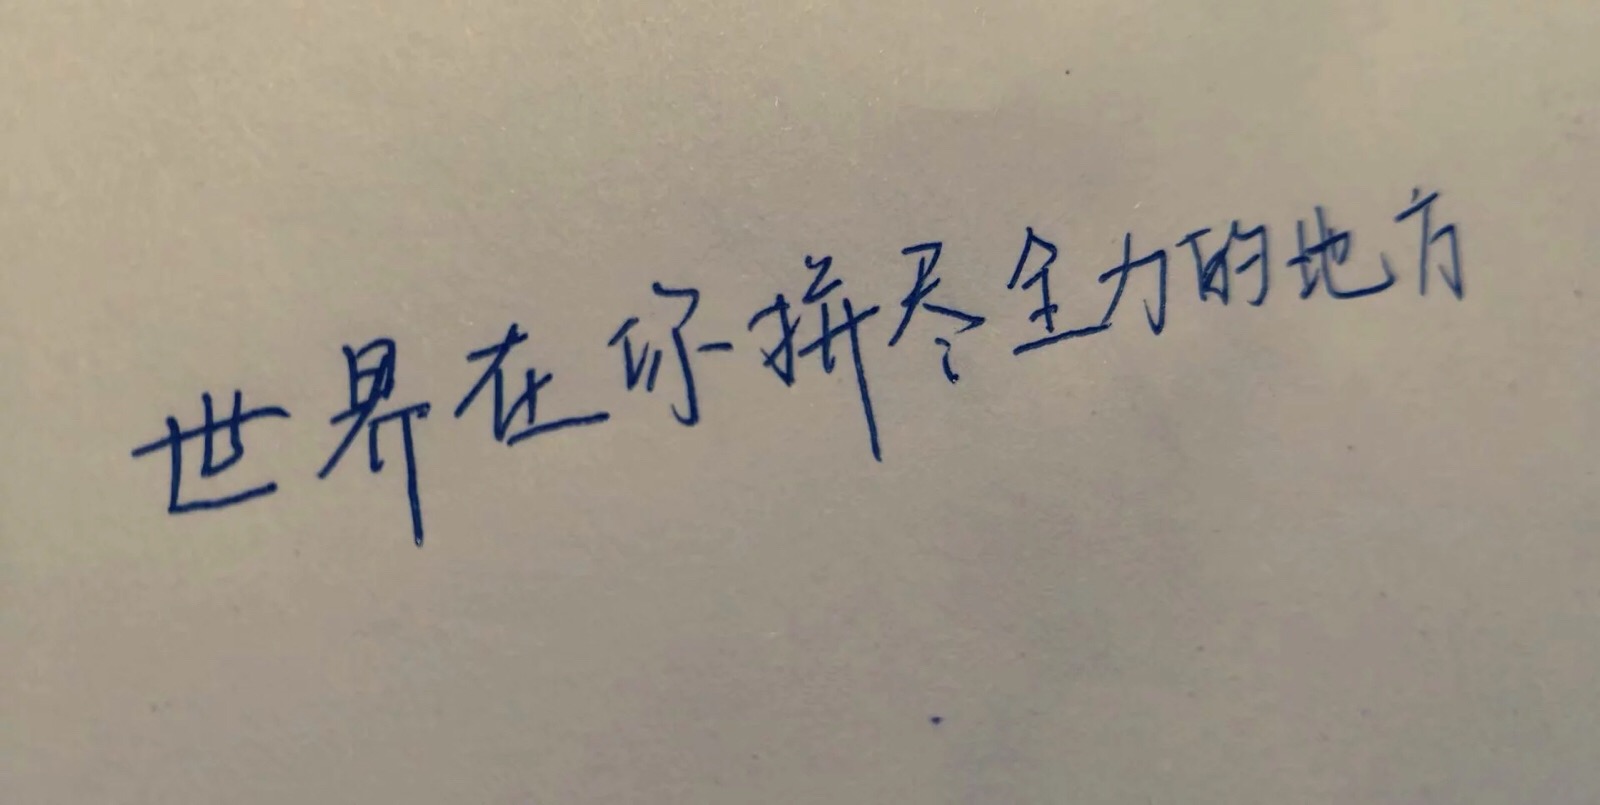 世界在你拼尽全力的地方